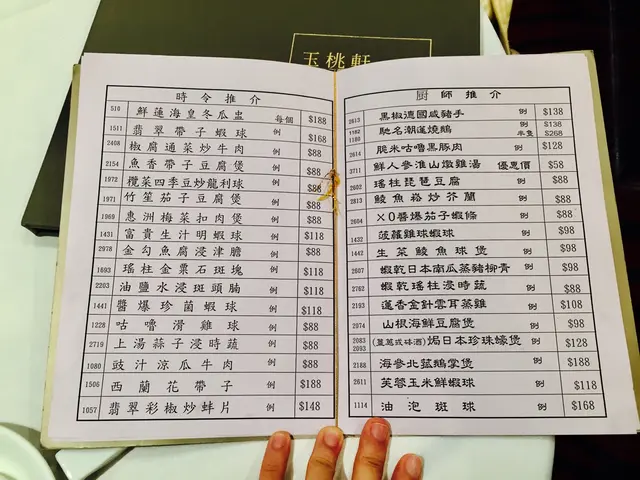 玉桃軒
時令推介
510 鮮蓮海皇冬瓜虫 每個 $188
1511 翡翠帶子蝦球 例 $168
2408 椒腐通菜炒牛肉 例 $88
2154 魚香帶子豆腐煲 例 $88
1972 欖菜四季豆炒龍利球 例 $88
1971 竹笙茄子豆腐煲 例 $88
1969 惠洲梅菜扣肉煲 例 $88
1431 富貴生汁明蝦球 例 $118
2978 金勾魚腐浸津膽 例 $88
1693 瑤柱金粟石斑塊 例 $118
2203 油鹽水浸斑頭腩 例 $118
1441 醬爆珍菌蝦球 例 $118
1228 咕嚕滑雞球 例 $88
2719 上湯蒜子浸時蔬 例 $88
1080 豉汁涼瓜牛肉 例 $88
1506 西蘭花帶子 例 $188
1057 翡翠彩椒炒蚌片 例 $148
厨師推介
2613 黑椒德國咸豬手 例 $138
1182 1180 馳名潮蓮燒鵝 例 $138 半隻 $268
2614 脆米咕嚕黑豚肉 例 $128
2711 鮮人參淮山燉雞湯 優惠價 $58
2602 瑤柱琵琶豆腐 例 $88
2813 鯪魚崧炒芥蘭 例 $88
2604 XO醬爆茄子蝦條 例 $88
1432 菠蘿雞球蝦球 例 $98
1442 生菜鯪魚球煲 例 $98
2607 蝦乾日本南瓜蒸豬柳青 例 $98
2762 蝦乾瑤柱浸時蔬 例 $88
2193 蓮香金針雲耳蒸雞 例 $108
2074 山根海鮮豆腐煲 例 $98
2083 2093 (薑葱或砵酒)焗日本珍珠蠔煲 例 $128
2188 海參北菇鵝掌煲 例 $188
2611 芙蓉玉米鮮蝦球 例 $118
1114 油泡斑球 例 $168